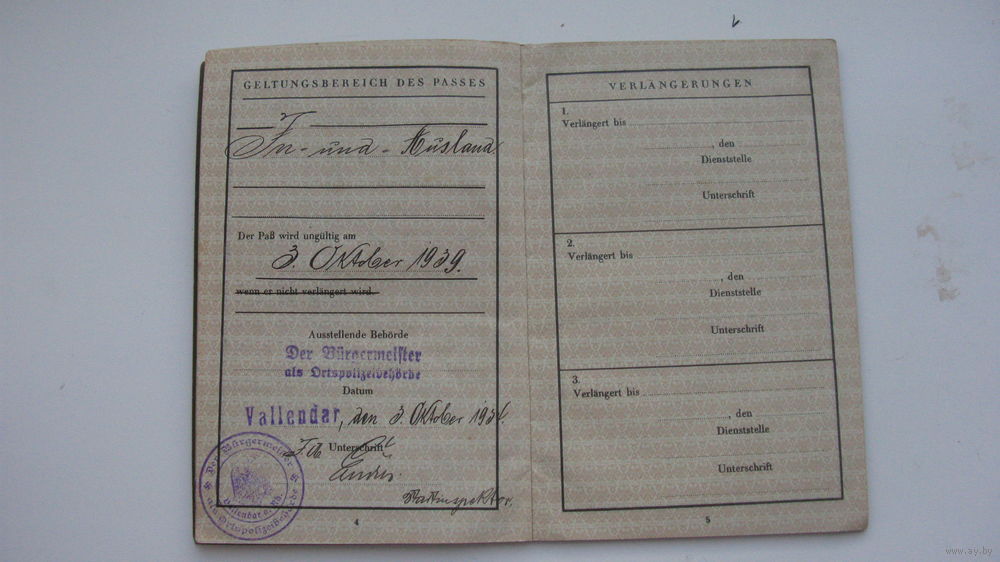 GELTUNGSBEREICH DES PASSES
In- und - Ausland
Der Paß wird ungültig am
3. Oktober 1939.
wenn er nicht verlängert wird.
Ausstellende Behörde
Der Bürgermeister
als Ortspolizeibehörde
Datum
Vallendar, den 3. Oktober 1934.
Unterschrift
Stadtinspektor.
Der Bürgermeister
als Ortspolizeibehörde
Vallendar a. Rh.
4
VERLÄNGERUNGEN
1.
Verlängert bis
, den
Dienststelle
Unterschrift
2.
Verlängert bis
, den
Dienststelle
Unterschrift
3.
Verlängert bis
, den
Dienststelle
Unterschrift
5
www.ay.by